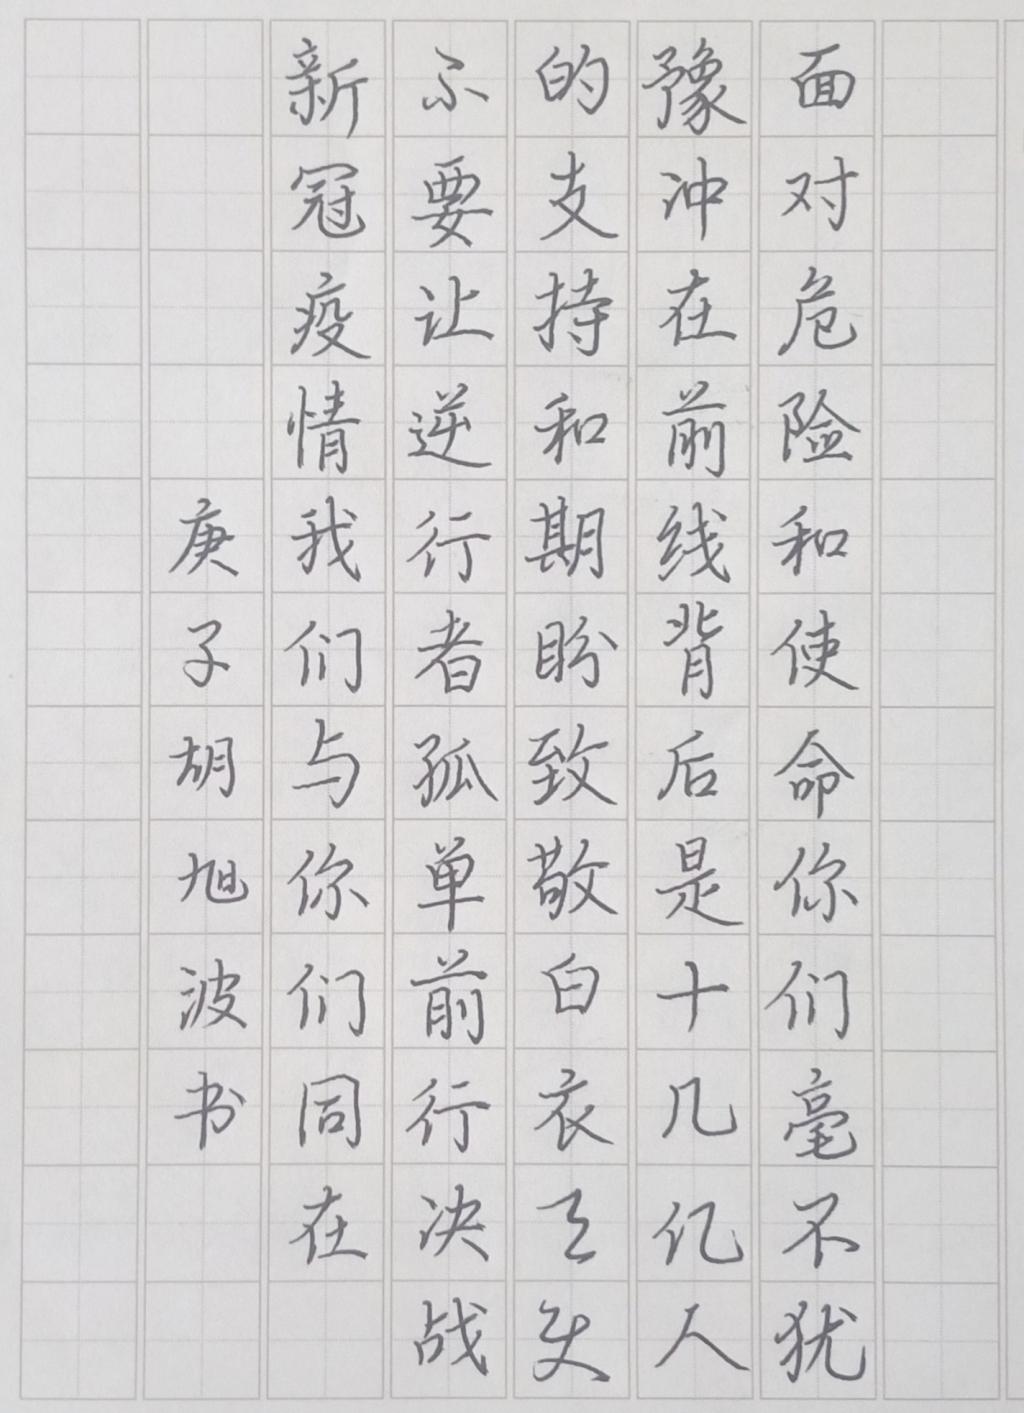 面对危险和使命你们毫不犹
豫冲在前线背后是十几亿人
的支持和期盼致敬白衣天使
不要让逆行者孤单前行决战
新冠疫情我们与你们同在
庚子胡旭波书